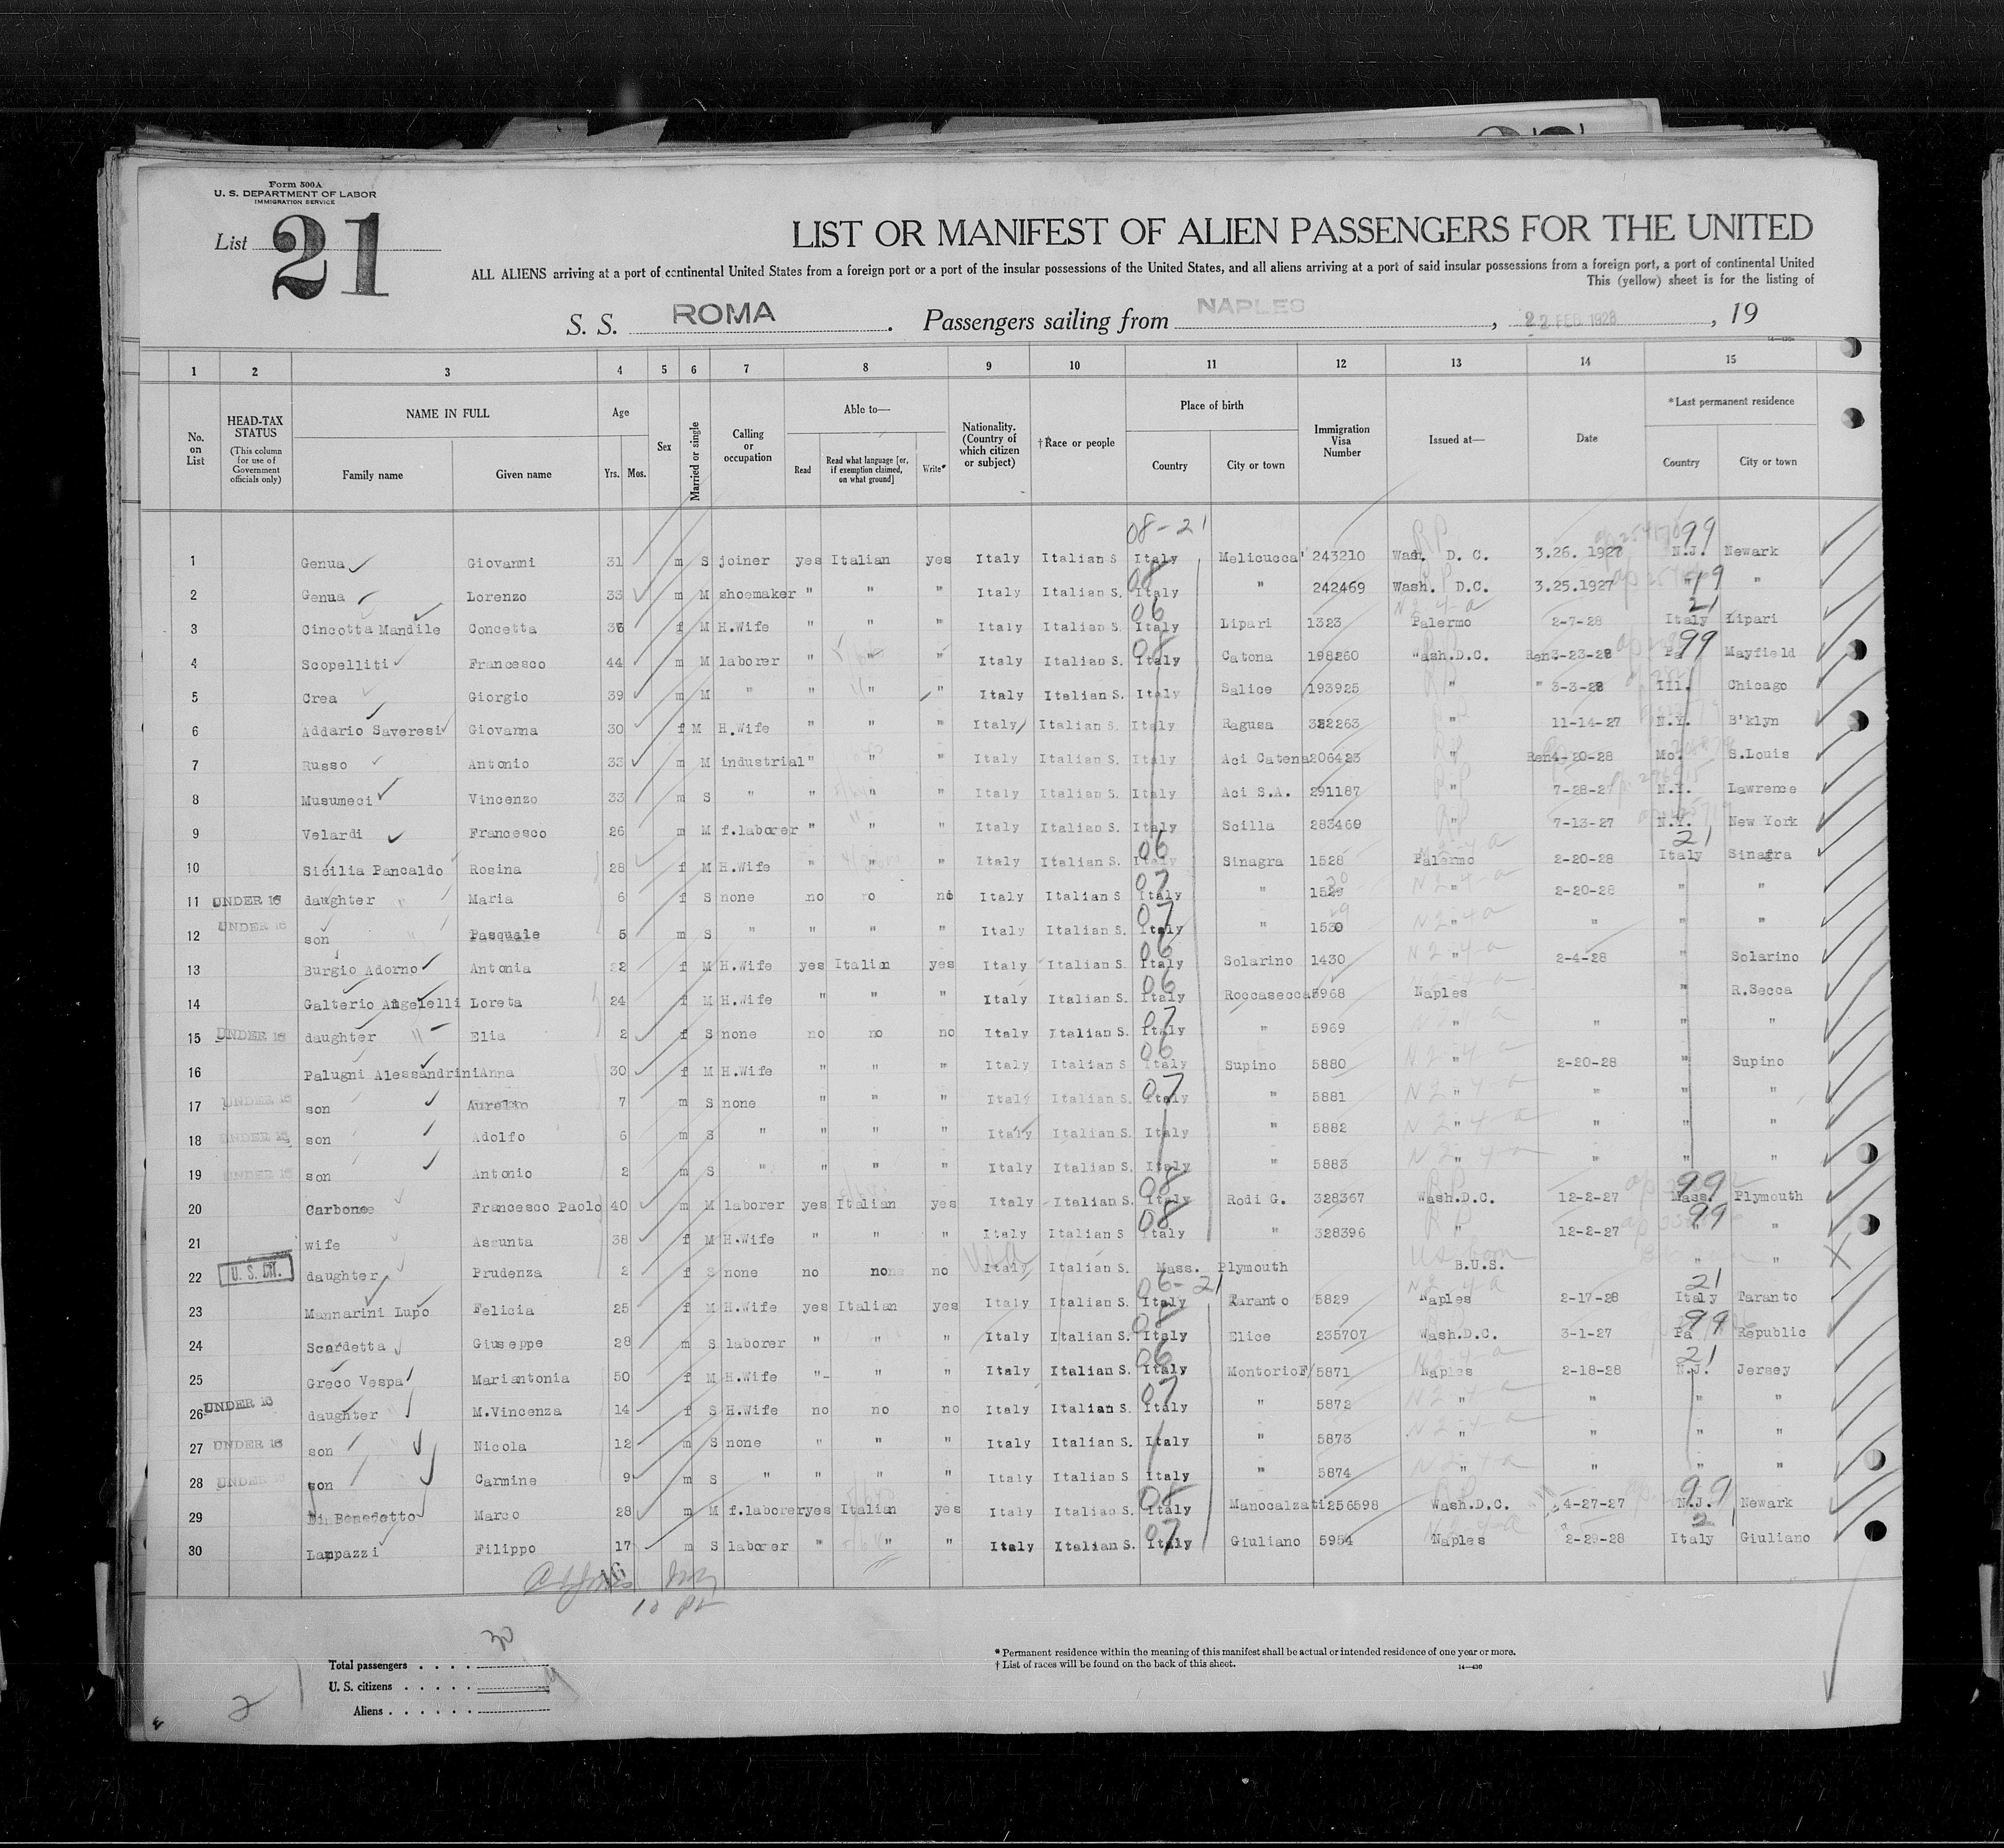 Form 500A
U. S. DEPARTMENT OF LABOR
IMMIGRATION SERVICE
List 21
LIST OR MANIFEST OF ALIEN PASSENGERS FOR THE UNITED
ALL ALIENS arriving at a port of continental United States from a foreign port or a port of the insular possessions of the United States, and all aliens arriving at a port of said insular possessions from a foreign port, a port of continental United
This (yellow) sheet is for the listing of
S. S. ROMA. Passengers sailing from NAPLES, 22 FEB 1928, 19
14—430
1 2 3 4 5 6 7 8 9 10 11 12 13 14 15
No. on List
HEAD-TAX STATUS (This column for use of Government officials only)
NAME IN FULL Family name Given name
Age Yrs. Mos.
Sex
Married or single
Calling or occupation
Able to— Read Read what language [or, if exemption claimed, on what ground] Write*
Nationality. (Country of which citizen or subject)
†Race or people
Place of birth Country City or town
Immigration Visa Number
Issued at—
Date
*Last permanent residence Country City or town
08-21 99
1 Genua Giovanni 31 m S joiner yes Italian yes Italy Italian S Italy Melicucca' 243210 Wash. D. C. 3.26. 1927 N.J. Newark
2 Genua Lorenzo 33 m M shoemaker " " " Italy Italian S. Italy " 242469 Wash. D.C. 3.25.1927 " "
3 Cincotta Mandile Concetta 36 f M H.Wife " " " Italy Italian S. Italy Lipari 1323 Palermo 2-7-28 Italy Lipari
4 Scopelliti Francesco 44 m M laborer " " " Italy Italian S. Italy Catona 198260 Wash.D.C. Ren3-23-28 Pa Mayfield
5 Crea Giorgio 39 m M " " " " Italy Italian S. Italy Salice 193925 " " 3-3-28 Ill. Chicago
6 Addario Saveresi Giovanna 30 f M H.Wife " " " Italy Italian S Italy Ragusa 322263 " 11-14-27 N.Y. B'klyn
7 Russo Antonio 33 m M industrial " " " Italy Italian S. Italy Aci Catena 206423 " Ren4-20-28 Mo. S.Louis
8 Musumeci Vincenzo 33 m S " " " " Italy Italian S. Italy Aci S.A. 291187 " 7-28-27 N.Y. Lawrence
9 Velardi Francesco 26 m M f.laborer " " " Italy Italian S. Italy Scilla 283469 " 7-13-27 N.Y. New York
10 Sicilia Pancaldo Rosina 28 f M H.Wife " " " Italy Italian S. Italy Sinagra 1528 Palermo 2-20-28 Italy Sinagra
11 UNDER 16 daughter Maria 6 f S none no no no Italy Italian S Italy " 1529 " 2-20-28 " "
12 UNDER 16 son Pasquale 5 m S " " " " Italy Italian S. Italy " 1530 " " " "
13 Burgio Adorno Antonia 22 f M H.Wife yes Italian yes Italy Italian S Italy Solarino 1430 " 2-4-28 " Solarino
14 Galterio Angelelli Loreta 24 f M H.Wife " " " Italy Italian S. Italy Roccasecca 5968 Naples " R.Secca
15 UNDER 16 daughter Elia 2 f S none no no no Italy Italian S. Italy " 5969 " " " "
16 Palugni Alessandrini Anna 30 f M H.Wife " " " Italy Italian S Italy Supino 5880 " 2-20-28 " Supino
17 UNDER 16 son Aurelio 7 m S none " " " Italy Italian S. Italy " 5881 " " " "
18 UNDER 16 son Adolfo 6 m S " " " " Italy Italian S. Italy " 5882 " " " "
19 UNDER 16 son Antonio 2 m S " " " " Italy Italian S. Italy " 5883 " " " "
20 Carbone Francesco Paolo 40 m M laborer yes Italian yes Italy Italian S. Italy Rodi G. 328367 Wash.D.C. 12-2-27 Mass. Plymouth
21 wife Assunta 38 f M H.Wife " " " Italy Italian S. Italy " 328396 " 12-2-27 " "
22 U. S. CIT. daughter Prudenza 2 f S none no none no Italy Italian S. Mass. Plymouth B.U.S. " "
23 Mannarini Lupo Felicia 25 f M H.Wife yes Italian yes Italy Italian S. Italy Taranto 5829 Naples 2-17-28 Italy Taranto
24 Scardetta Giuseppe 28 m S laborer " " " Italy Italian S. Italy Elice 235707 Wash.D.C. 3-1-27 Pa Republic
25 Greco Vespa Mariantonia 50 f M H.Wife " " " Italy Italian S. Italy MontorioF/ 5871 Naples 2-18-28 N.J. Jersey
26 UNDER 16 daughter M.Vincenza 14 f S H.Wife no no no Italy Italian S. Italy " 5872 " " " "
27 UNDER 16 son Nicola 12 m S none " " " Italy Italian S. Italy " 5873 " " " "
28 UNDER 16 son Carmine 9 m S " " " " Italy Italian S Italy " 5874 " " " "
29 Di Benedetto Marco 28 m M f.laborer yes Italian yes Italy Italian S. Italy Manocalzati 256598 Wash.D.C. 4-27-27 N.J. Newark
30 Lampazzi Filippo 17 m S laborer " " " Italy Italian S. Italy Giuliano 5954 Naples 2-29-28 Italy Giuliano
Total passengers . . . . 30
U. S. citizens . . . . .
Aliens . . . . . .
* Permanent residence within the meaning of this manifest shall be actual or intended residence of one year or more.
† List of races will be found on the back of this sheet.
14—430